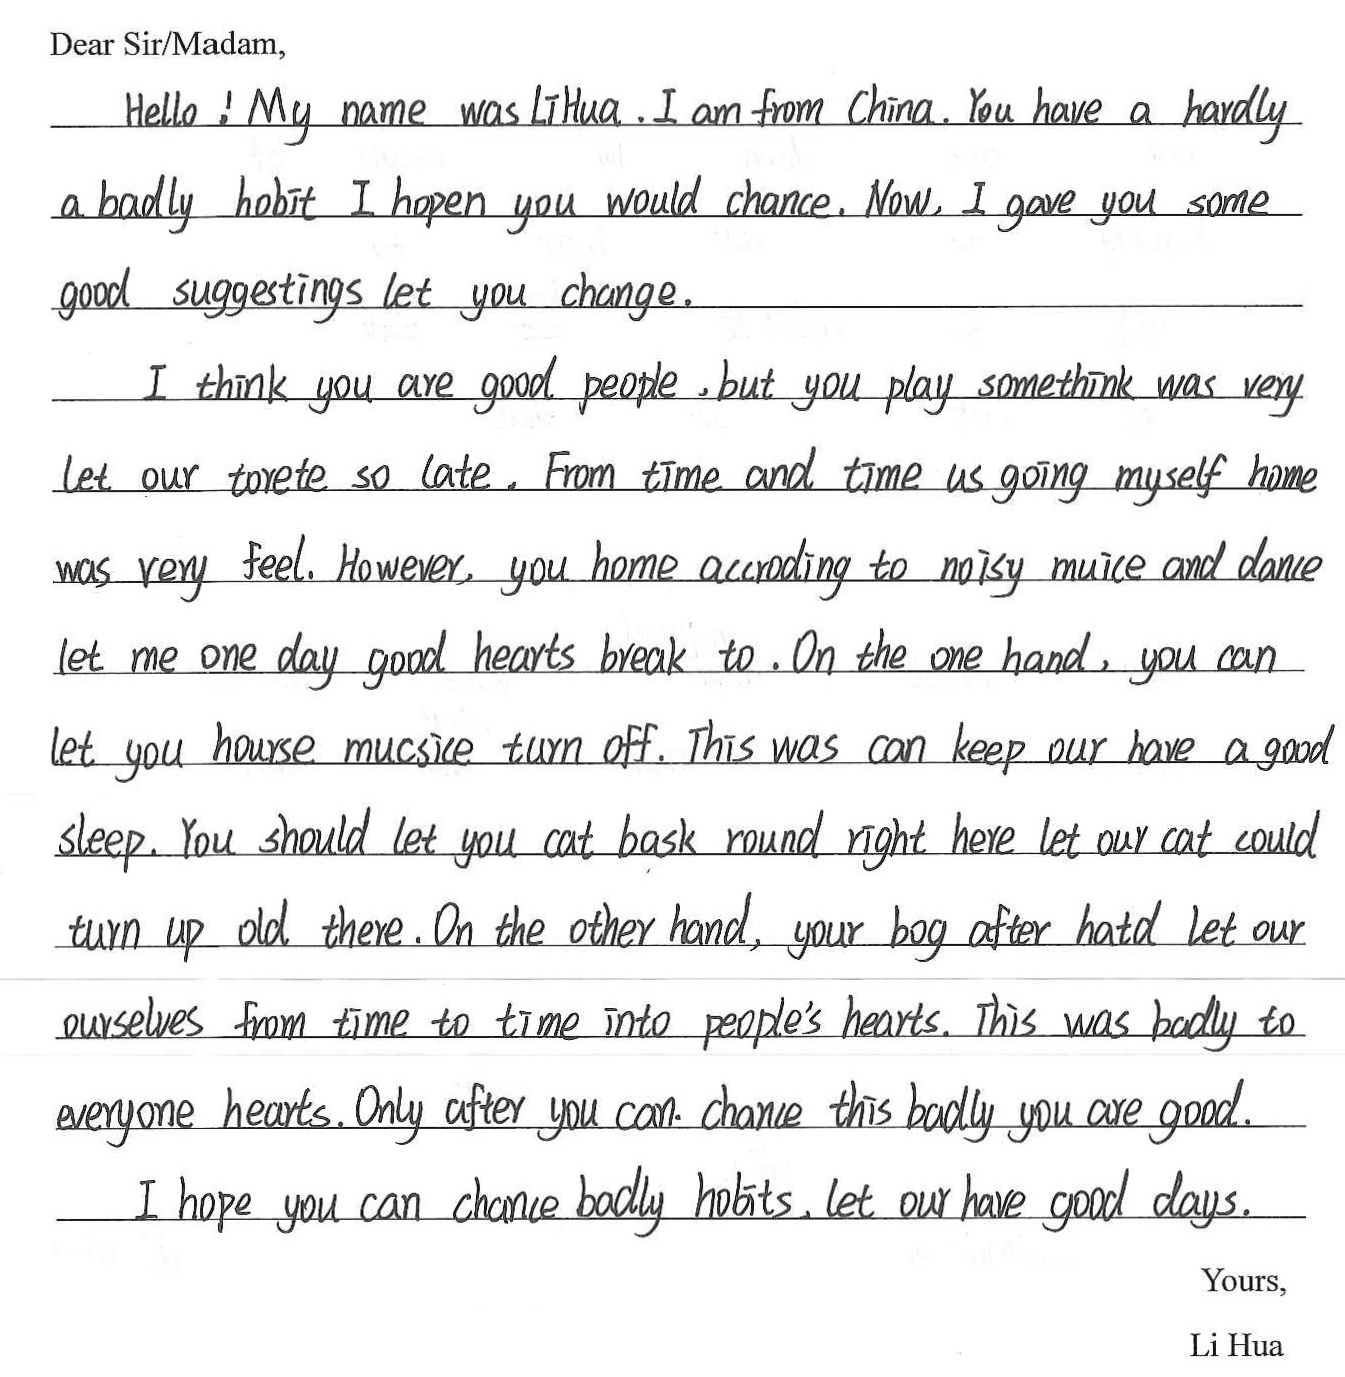 Dear Sir/Madam,
Hello! My name was Li Hua. I am from China. You have a hardly
a badly hobit I hopen you would chance. Now, I gave you some
good suggestings let you change.
I think you are good people, but you play somethink was very
let our torete so late. From time and time us going myself home
was very feel. However, you home accroding to noisy muice and dance
let me one day good hearts break to. On the one hand, you can
let you hourse mucsice turn off. This was can keep our have a good
sleep. You should let you cat bask round right here let our cat could
turn up old there. On the other hand, your bog after hatd let our
ourselves from time to time into people's hearts. This was badly to
everyone hearts. Only after you can chance this badly you are good.
I hope you can chance badly hobits, let our have good days.
Yours,
Li Hua